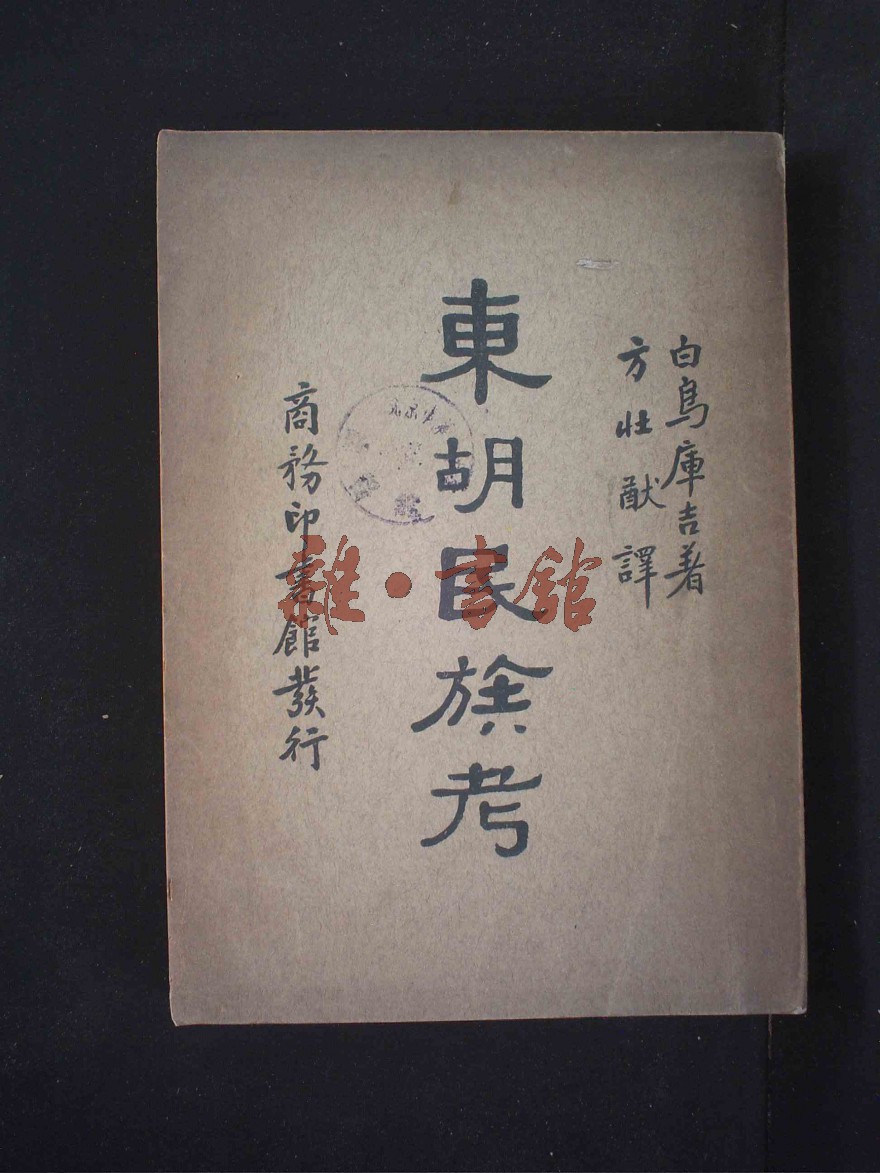 白鳥庫吉著
方壯猷譯
東胡民族考
商務印書館發行
雜·書館